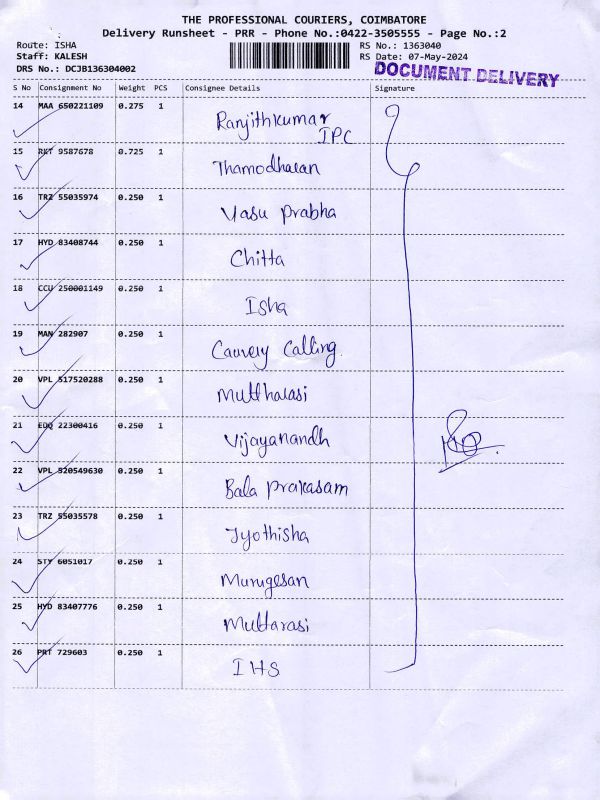 THE PROFESSIONAL COURIERS, COIMBATORE
Delivery Runsheet - PRR - Phone No.:0422-3505555 - Page No.:2
Route: ISHA RS No.: 1363040
Staff: KALESH RS Date: 07-May-2024
DRS No.: DCJB136304002 DOCUMENT DELIVERY
S No Consignment No Weight PCS Consignee Details Signature
14 MAA 650221109 0.275 1 Ranjithkumar
IPC
15 RKT 9587678 0.725 1 Thamodharan
16 TRZ 55035974 0.250 1 Vasu Prabha
17 HYD 83408744 0.250 1 Chitta
18 CCU 250001149 0.250 1 Isha
19 MAN 282907 0.250 1 Cauvery Calling
20 VPL 517520288 0.250 1 Muttharasi
21 EDQ 22300416 0.250 1 Vijayanandh
22 VPL 520549630 0.250 1 Bala Prakasam
23 TRZ 55035578 0.250 1 Jyothisha
24 STY 6051017 0.250 1 Murugesan
25 HYD 83407776 0.250 1 Muttarasi
26 PRT 729603 0.250 1 IHS